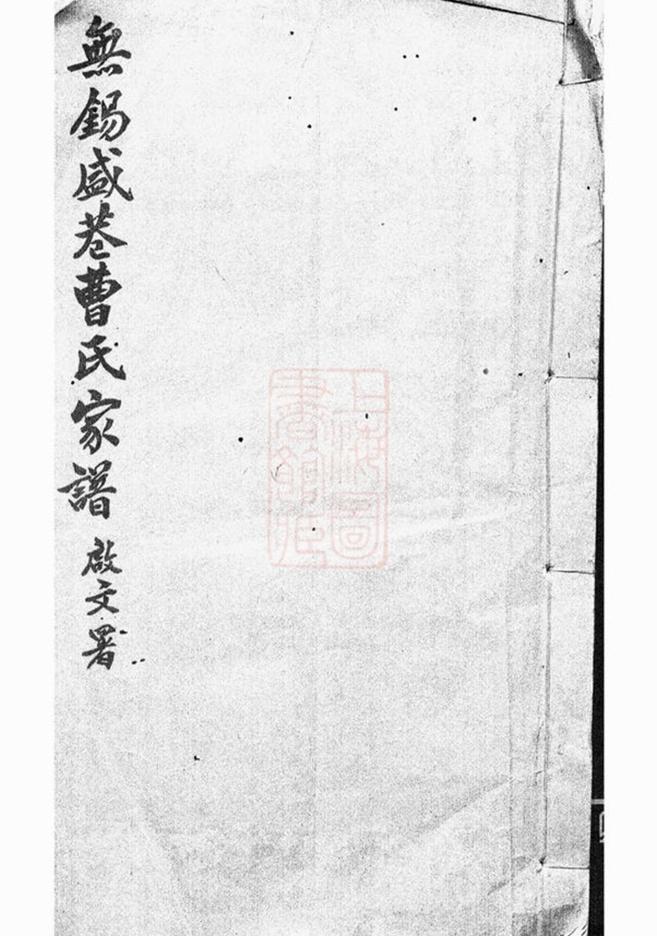 無錫盛巷曹氏家譜 啟文署
上海圖書館藏